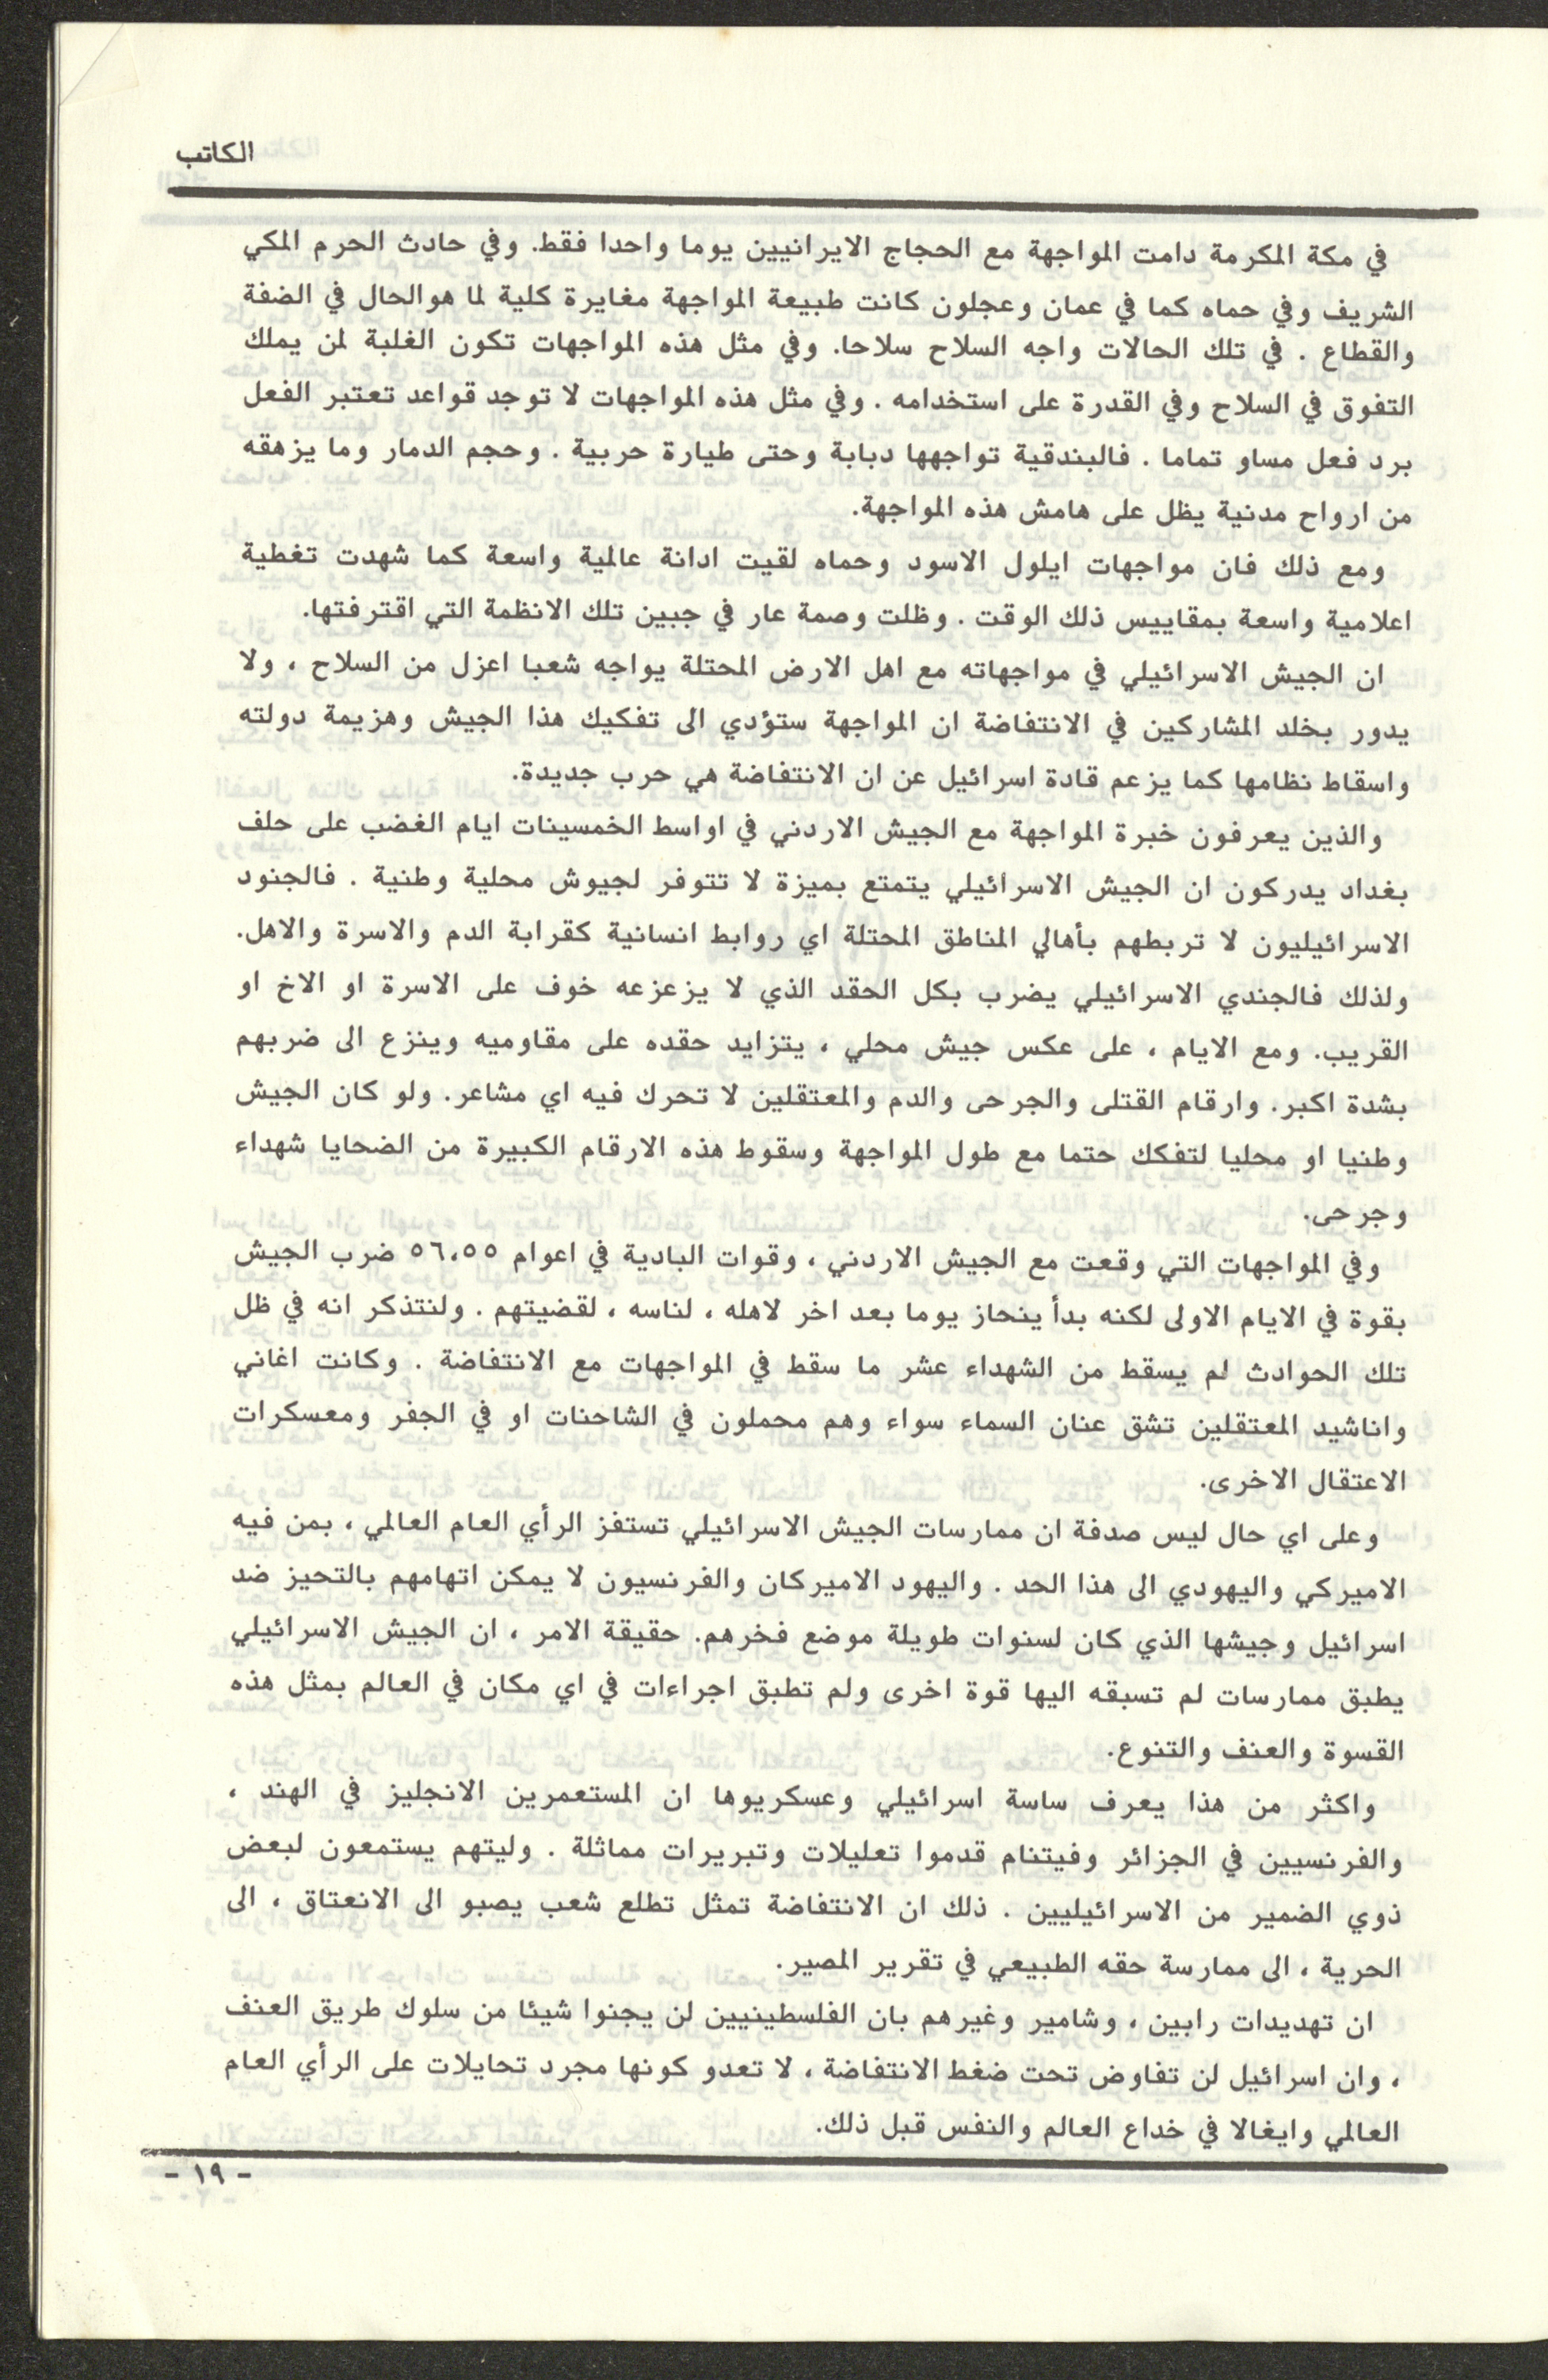 الكاتب
في مكة المكرمة دامت المواجهة مع الحجاج الايرانيين يوما واحدا فقط. وفي حادث الحرم المكي
الشريف وفي حماه كما في عمان وعجلون كانت طبيعة المواجهة مغايرة كلية لما هوالحال في الضفة
والقطاع . في تلك الحالات واجه السلاح سلاحا. وفي مثل هذه المواجهات تكون الغلبة لمن يملك
التفوق في السلاح وفي القدرة على استخدامه . وفي مثل هذه المواجهات لا توجد قواعد تعتبر الفعل
برد فعل مساو تماما . فالبندقية تواجهها دبابة وحتى طيارة حربية . وحجم الدمار وما يزهقه
من ارواح مدنية يظل على هامش هذه المواجهة.
ومع ذلك فان مواجهات ايلول الاسود وحماه لقيت ادانة عالمية واسعة كما شهدت تغطية
اعلامية واسعة بمقاييس ذلك الوقت . وظلت وصمة عار في جبين تلك الانظمة التي اقترفتها.
ان الجيش الاسرائيلي في مواجهاته مع اهل الارض المحتلة يواجه شعبا اعزل من السلاح ، ولا
يدور بخلد المشاركين في الانتفاضة ان المواجهة ستؤدي الى تفكيك هذا الجيش وهزيمة دولته
واسقاط نظامها كما يزعم قادة اسرائيل عن ان الانتفاضة هي حرب جديدة.
والذين يعرفون خبرة المواجهة مع الجيش الاردني في اواسط الخمسينات ايام الغضب على حلف
بغداد يدركون ان الجيش الاسرائيلي يتمتع بميزة لا تتوفر لجيوش محلية وطنية . فالجنود
الاسرائيليون لا تربطهم بأهالي المناطق المحتلة اي روابط انسانية كقرابة الدم والاسرة والاهل.
ولذلك فالجندي الاسرائيلي يضرب بكل الحقد الذي لا يزعزعه خوف على الاسرة او الاخ او
القريب. ومع الايام ، على عكس جيش محلي ، يتزايد حقده على مقاوميه وينزع الى ضربهم
بشدة اكبر. وارقام القتلى والجرحى والدم والمعتقلين لا تحرك فيه اي مشاعر. ولو كان الجيش
وطنيا او محليا لتفكك حتما مع طول المواجهة وسقوط هذه الارقام الكبيرة من الضحايا شهداء
وجرحى.
وفي المواجهات التي وقعت مع الجيش الاردني ، وقوات البادية في اعوام ٥٦،٥٥ ضرب الجيش
بقوة في الايام الاولى لكنه بدأ ينحاز يوما بعد اخر لاهله ، لناسه ، لقضيتهم . ولنتذكر انه في ظل
تلك الحوادث لم يسقط من الشهداء عشر ما سقط في المواجهات مع الانتفاضة . وكانت اغاني
واناشيد المعتقلين تشق عنان السماء سواء وهم محملون في الشاحنات او في الجفر ومعسكرات
الاعتقال الاخرى.
وعلى اي حال ليس صدفة ان ممارسات الجيش الاسرائيلي تستفز الرأي العام العالمي ، بمن فيه
الاميركي واليهودي الى هذا الحد . واليهود الاميركان والفرنسيون لا يمكن اتهامهم بالتحيز ضد
اسرائيل وجيشها الذي كان لسنوات طويلة موضع فخرهم. حقيقة الامر ، ان الجيش الاسرائيلي
يطبق ممارسات لم تسبقه اليها قوة اخرى ولم تطبق اجراءات في اي مكان في العالم بمثل هذه
القسوة والعنف والتنوع.
واكثر من هذا يعرف ساسة اسرائيلي وعسكريوها ان المستعمرين الانجليز في الهند ،
والفرنسيين في الجزائر وفيتنام قدموا تعليلات وتبريرات مماثلة . وليتهم يستمعون لبعض
ذوي الضمير من الاسرائيليين . ذلك ان الانتفاضة تمثل تطلع شعب يصبو الى الانعتاق ، الى
الحرية ، الى ممارسة حقه الطبيعي في تقرير المصير.
ان تهديدات رابين ، وشامير وغيرهم بان الفلسطينيين لن يجنوا شيئا من سلوك طريق العنف
، وان اسرائيل لن تفاوض تحت ضغط الانتفاضة ، لا تعدو كونها مجرد تحايلات على الرأي العام
العالمي وايغالا في خداع العالم والنفس قبل ذلك.
- ١٩ -